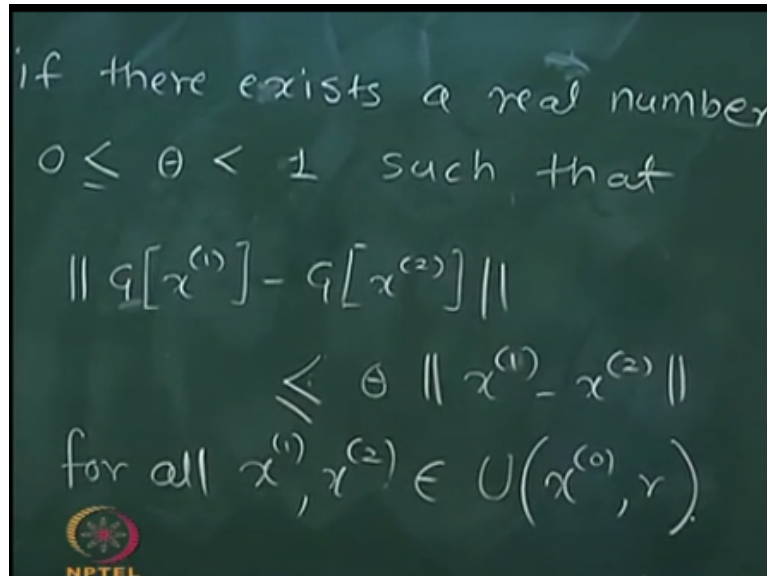 if there exists a real number
0 ≤ θ < 1 such that
|| G[x^(1)] - G[x^(2)] ||
≤ θ || x^(1) - x^(2) ||
for all x^(1), x^(2) ∈ U(x^(0), r).
NPTEL